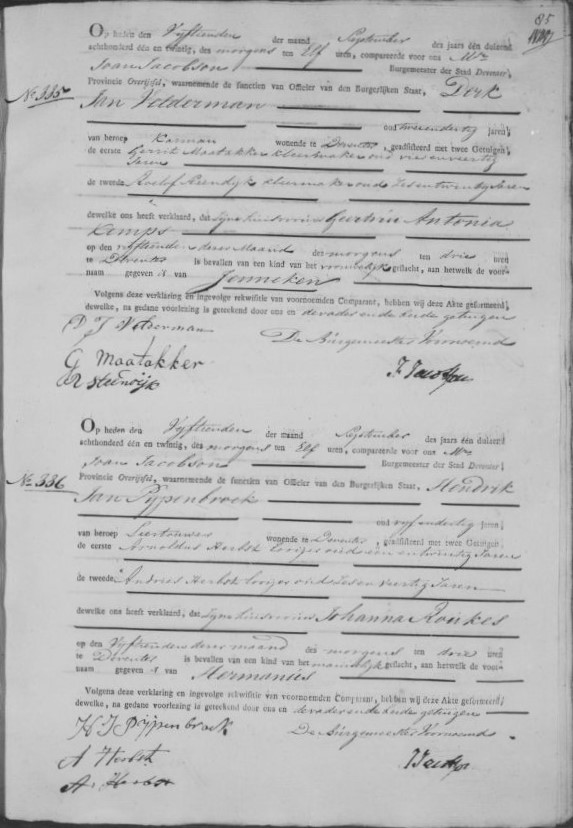 85
Op heden den Vyftienden der maand September des jaars één duizend
achthonderd één en twintig, des morgens ten Elf uren, compareerde voor ons Mr.
Joan Jacobson Burgemeester der Stad Deventer,
Provincie Overijssel, waarnemende de functien van Officier van den Burgerlijken Staat, Derk
No. 335
Jan Velderman
oud tweeendertig jaren,
van beroep Karman wonende te Deventer, geassisteerd met twee Getuigen,
de eerste Gerrit Maatakker kleermaker oud vierenveertig
Jaren
de tweede Roelof Steendyk kleermaker oud zesentwintig Jaren
dewelke ons heeft verklaard, dat zyne huisvrouw Geertruy Antonia
Kemps
op den vyftienden dezer Maand des morgens ten drie uren
te Deventer is bevallen van een kind van het vrouwelyk geslacht, aan hetwelk de voor-
naam gegeven is van Jenneken
Volgens deze verklaring en ingevolge rekwisitie van voornoemden Comparant, hebben wij deze Akte geformeerd,
dewelke, na gedane voorlezing is geteekend door ons en de vader en beide getuigen
D J Velderman
De Burgemeester Voornoemd
G Maatakker
R Steendijk
J Jacobson
Op heden den Vyftienden der maand September des jaars één duizend
achthonderd één en twintig, des morgens ten Elf uren, compareerde voor ons Mr.
Joan Jacobson Burgemeester der Stad Deventer,
Provincie Overijssel, waarnemende de functien van Officier van den Burgerlijken Staat, Hendrik
No. 336
Jan Pypenbroek
oud vyfendertig jaren,
van beroep Leertouwer wonende te Deventer, geassisteerd met twee Getuigen,
de eerste Arnoldus Herbst oud een en twintig Jaren
de tweede Andries Herbst oud zesenveertig Jaren
dewelke ons heeft verklaard, dat zyne huisvrouw Johanna Roukes
op den Vyftienden dezer maand des morgens ten drie uren
te Deventer is bevallen van een kind van het mannelyk geslacht, aan hetwelk de voor-
naam gegeven is van Hermanus
Volgens deze verklaring en ingevolge rekwisitie van voornoemden Comparant, hebben wij deze Akte geformeerd,
dewelke, na gedane voorlezing is geteekend door ons en de vader en beide getuigen
H J Pijpenbroek
De Burgemeester Voornoemd
A Herbst
J Jacobson
A. Herbst